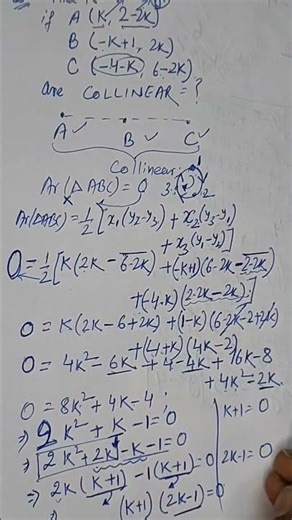 if A (K, 2-2K)
B (-K+1, 2K)
C (-4-K, 6-2K)
are COLLINEAR = ?
A B C
Collinear
Ar(△ABC) = 0 3 1 2
Ar(△ABC) = 1/2 [x1(y2-y3) + x2(y3-y1)
+ x3(y1-y2)]
0 = 1/2 [K(2K - 6-2K) + (-K+1)(6-2K - 2-2K)
+ (-4-K)(2-2K - 2K)]
0 = K(2K-6+2K) + (1-K)(6-2K-2+2K)
+ (-4-K)(2-4K)
0 = 4K² - 6K + 4 - 4K + 16K - 8
+ 4K² - 2K
0 = 8K² + 4K - 4
⇒ 2K² + K - 1 = 0
⇒ 2K² + 2K - K - 1 = 0
⇒ 2K (K+1) - 1 (K+1) = 0
(K+1) (2K-1) = 0
K+1 = 0
2K-1 = 0